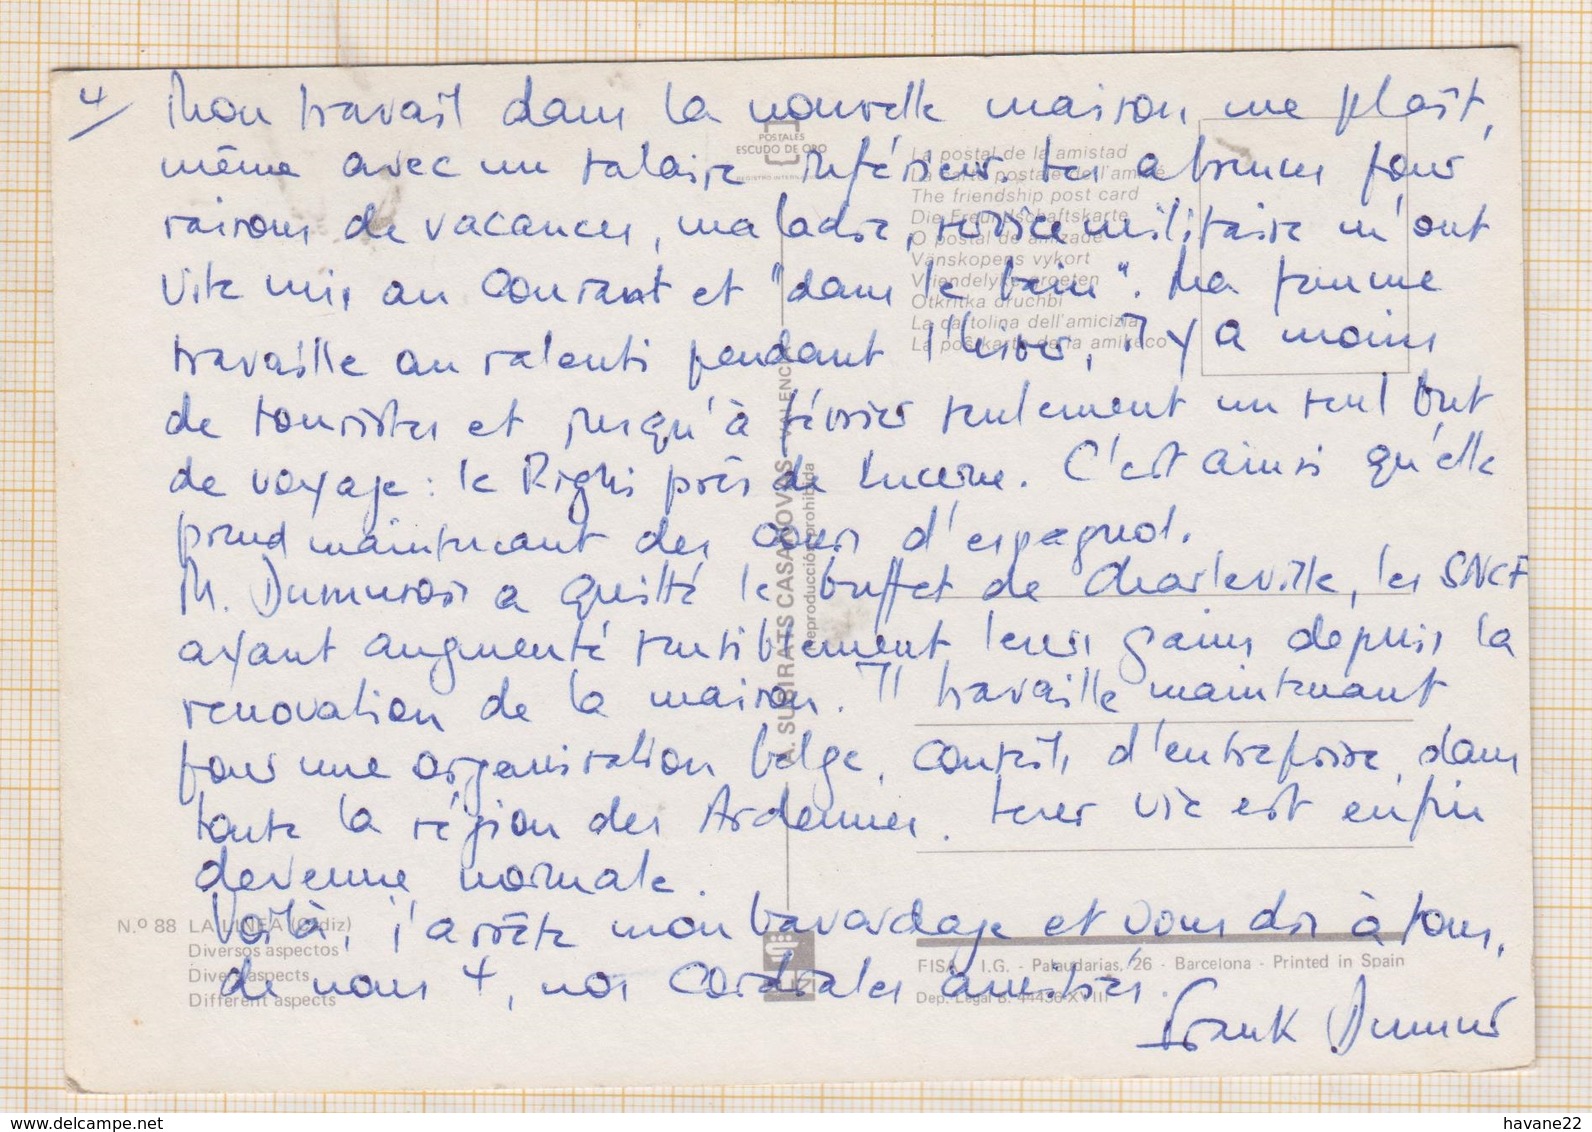 4/
Mon travail dans la nouvelle maison me plaît,
même avec un salaire inférieur. Les absences pour
raisons de vacances, maladie, service militaire m'ont
vite mis au courant et "dans le bain". Ma femme
travaille au ralenti pendant l'hiver, il y a moins
de touristes et jusqu'à février seulement un seul but
de voyage : le Righi près de Lucerne. C'est ainsi qu'elle
prend maintenant des cours d'espagnol.
M. a quitté le buffet de Charleville, les SNCF
ayant augmenté sensiblement leurs gains depuis la
renovation de la maison. Il travaille maintenant
pour une organisation belge, conseils d'entreprise, dans
toute la région des Ardennes. Leur vie est enfin
devenue normale.
Voilà, j'arrête mon bavardage et vous dis à tous,
de nous 4, nos cordiales amitiés.
Frank
POSTALES
ESCUDO DE ORO
REGISTRO INTERNAL
La postal de la amistad
La carte postale de l'amitié
The friendship post card
Die Freundschaftskarte
O postal de amizade
Vänskopens vykort
Vriendelyke groeten
Otkritka druchbi
La cartolina dell'amicizia
La postkarto de la amikeco
A. SUBIRATS CASANOVAS - VALENCIA
Reproducción prohibida
N.º 88 LA LINEA (Cádiz)
Diversos aspectos
Divers aspects
Different aspects
FISA - I.G. - Palaudarias, 26 - Barcelona - Printed in Spain
Dep. Legal B. 44436-XVIII
www.delcampe.net
havane22